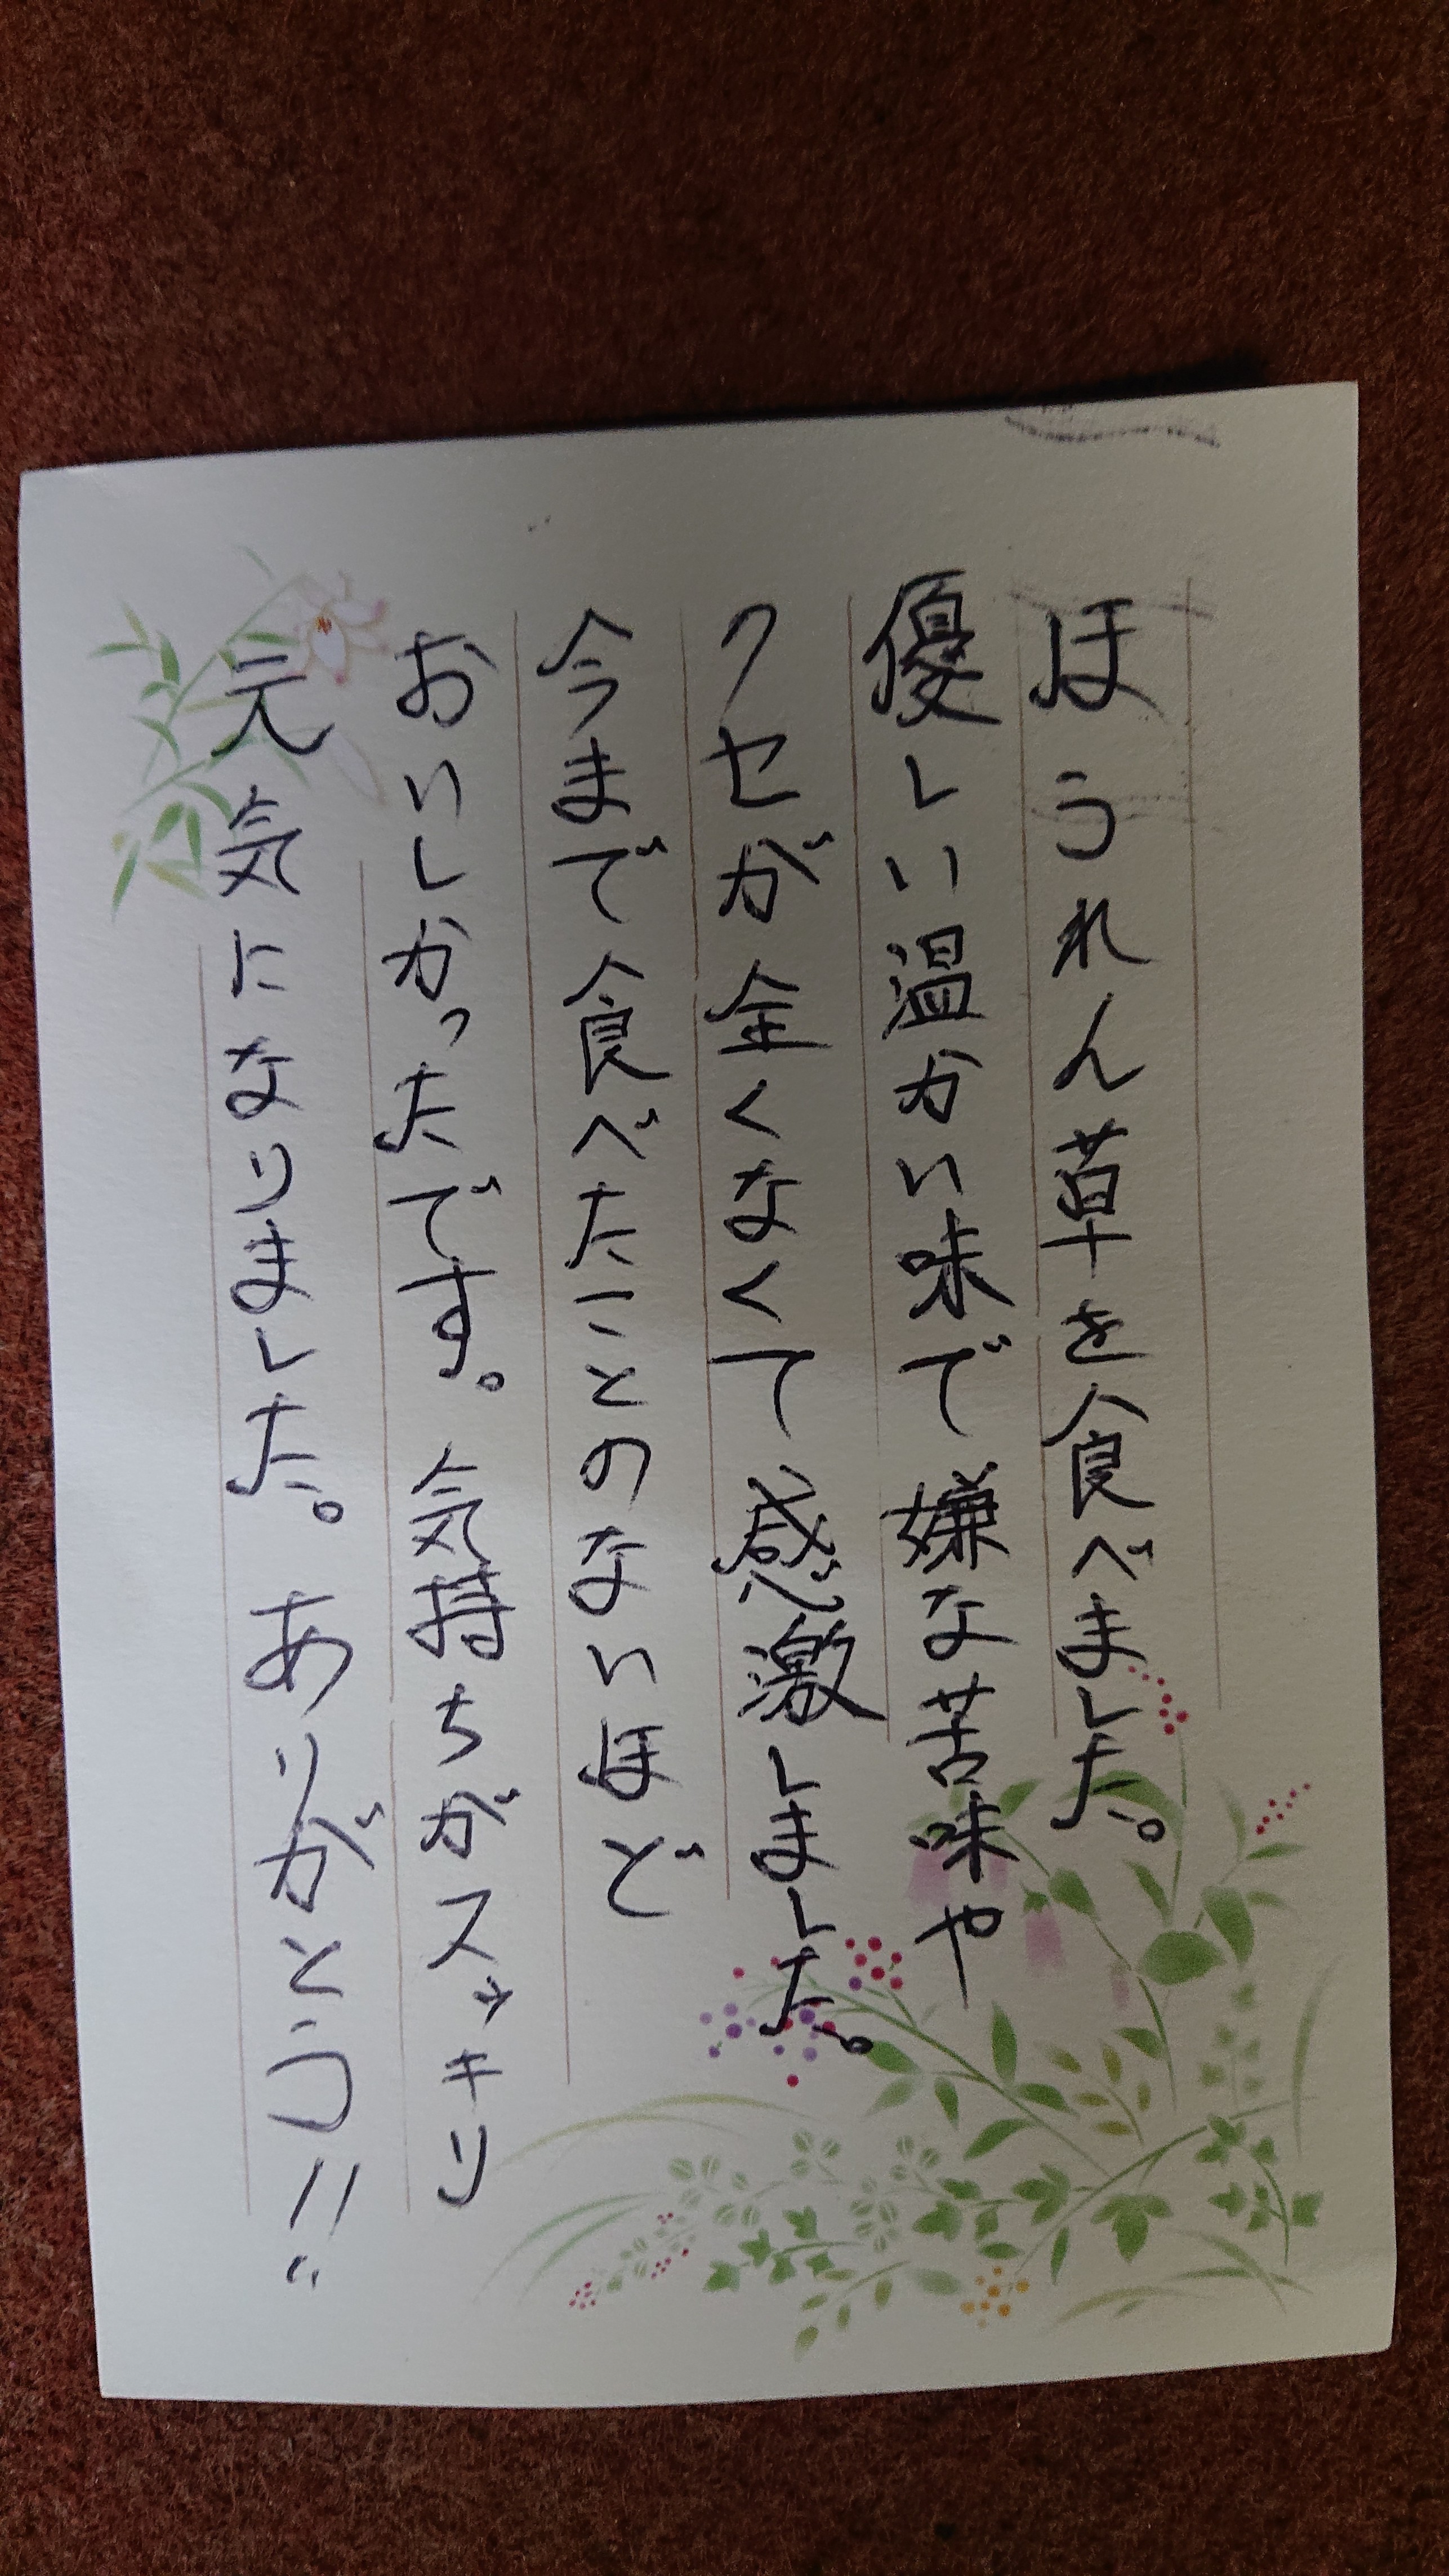 ほうれん草を食べました。
優しい温かい味で嫌な苦味や
クセが全くなくて感激しました。
今まで食べたことのないほど
おいしかったです。気持ちがスッキリ
元気になりました。ありがとう!!